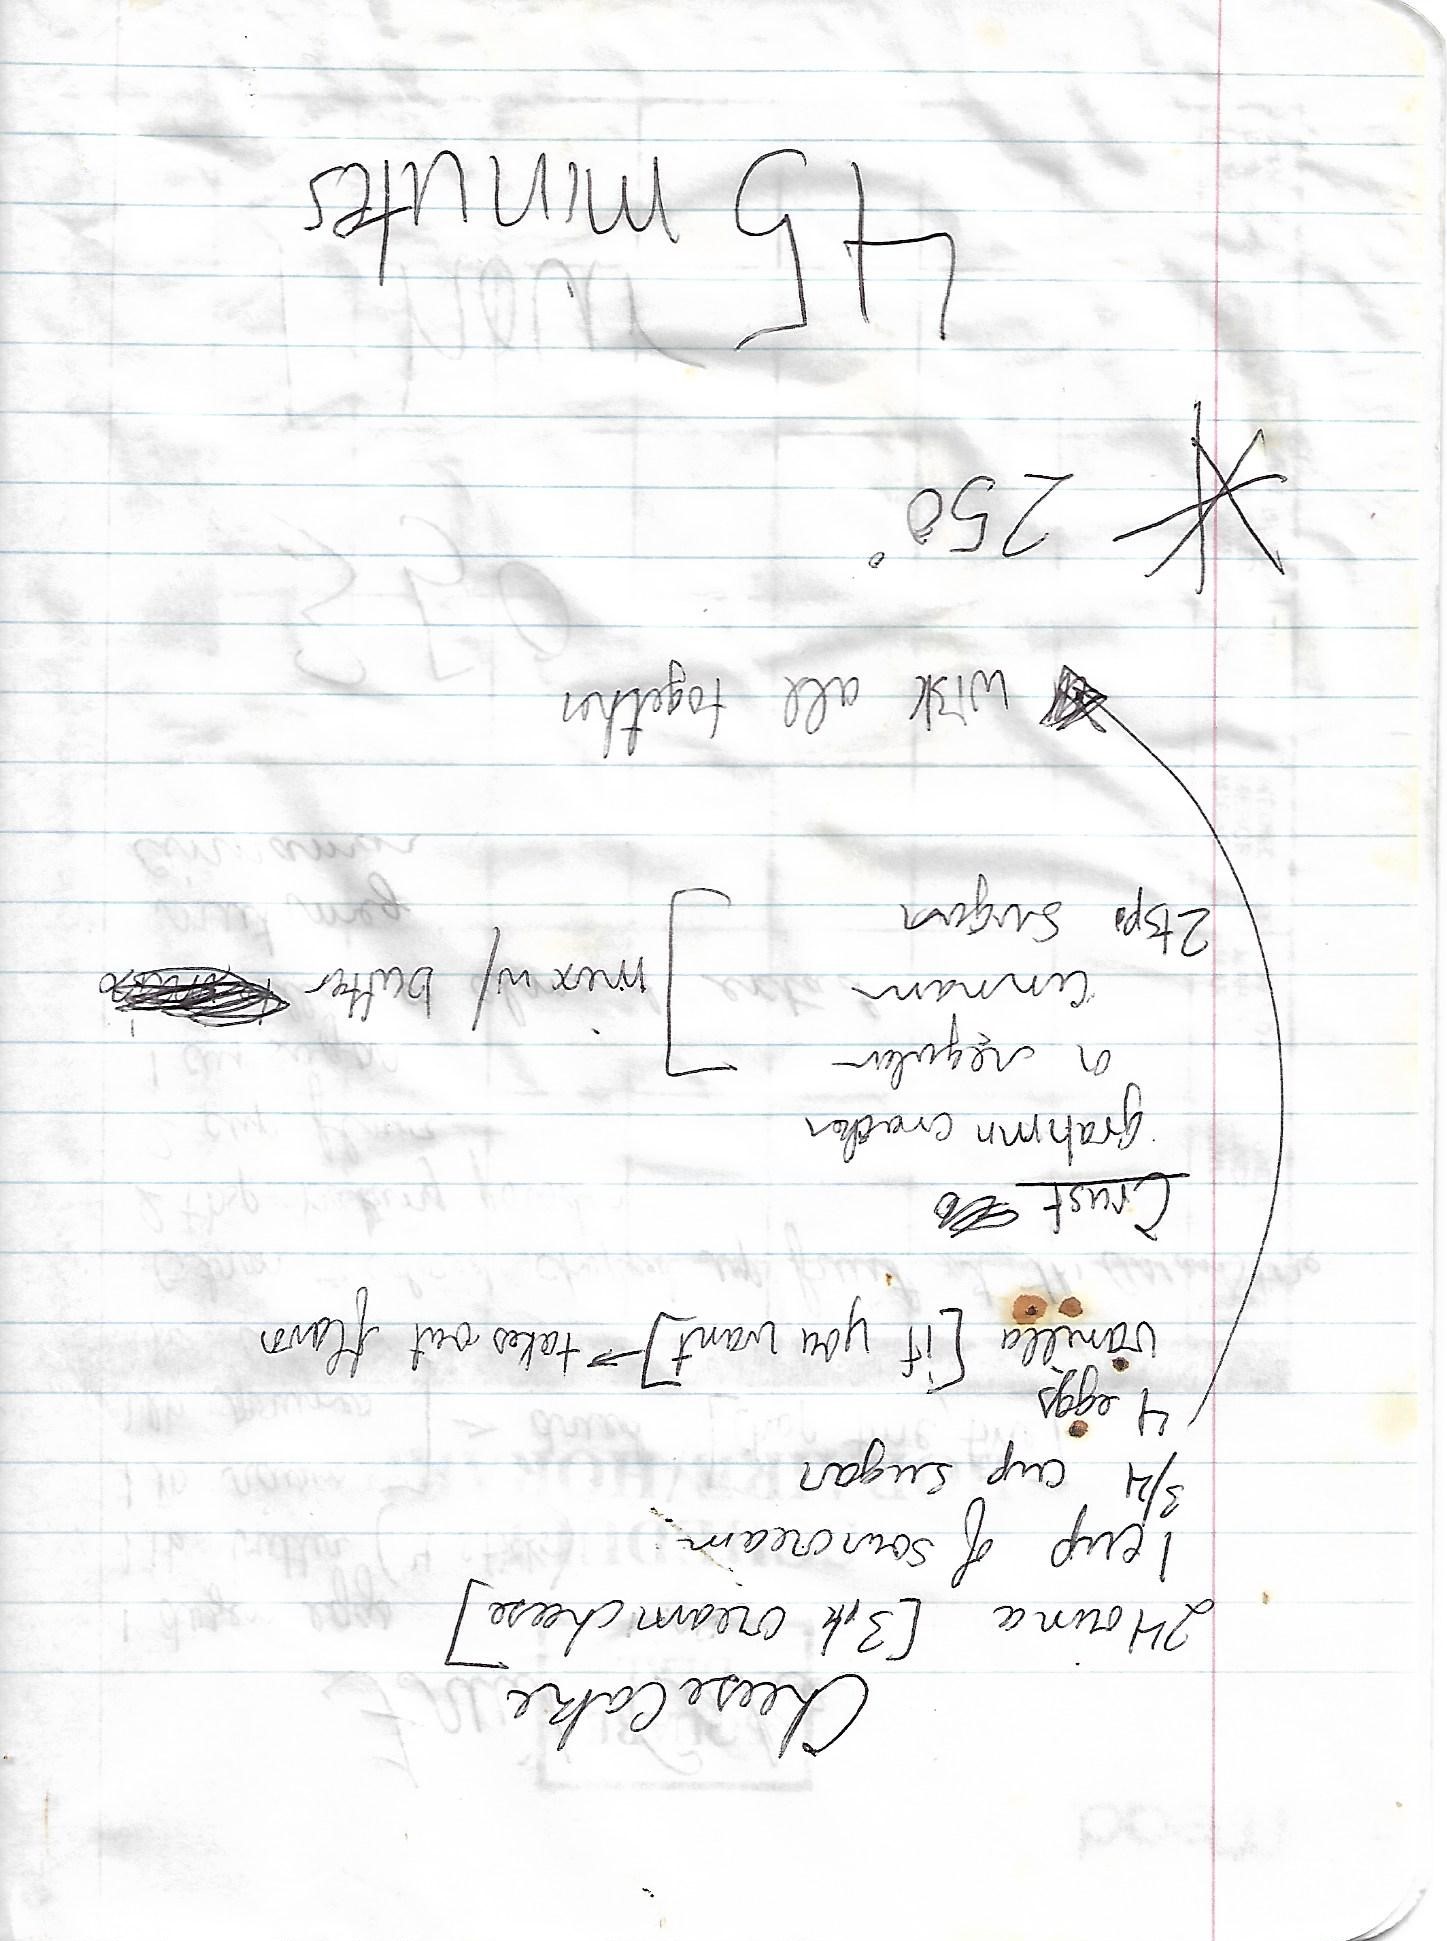 Cheese Cake
24 ounce [3pk cream cheese]
1 cup of sour cream
3/4 cup sugar
4 eggs
vanilla [if you want] → takes out flavor
Crust
grahmn cracker
or regular
cinnam
2 tsp. sugar
mix w/ butter
wisk all together
* 250°
45 minutes